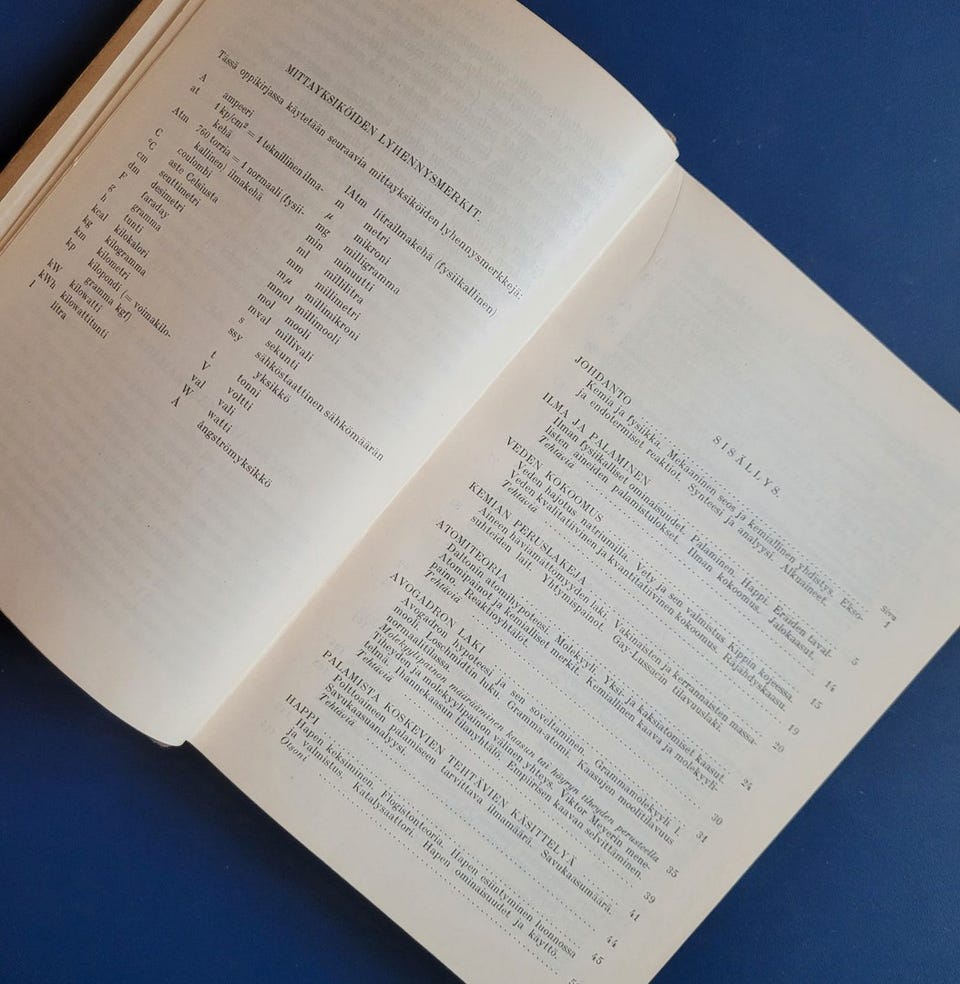 MITTAYKSIKÖIDEN LYHENNYSMERKIT.
Tässä oppikirjassa käytetään seuraavia mittayksiköiden lyhennysmerkkejä:
A ampeeri
at 1 kp/cm² = 1 teknillinen ilma-
kehä
Atm 760 torria = 1 normaali (fysii-
kallinen) ilmakehä
C coulombi
°C aste Celsiusta
cm senttimetri
dm desimetri
F faraday
g gramma
h tunti
kcal kilokalori
kg kilogramma
km kilometri
kp kilopondi (= voimakilo-
gramma kgf)
kW kilowatti
kWh kilowattitunti
l litra
lAtm litrailmakehä (fysiikallinen)
m metri
μ mikroni
mg milligramma
min minuutti
ml millilitra
mm millimetri
mμ millimikroni
mmol millimooli
mol mooli
mval millivali
s sekunti
ssy sähköstaattinen sähkömäärän
yksikkö
t tonni
V voltti
val vali
W watti
Å ångströmyksikkö
SISÄLLYS.
Sivu
JOHDANTO 1
Kemia ja fysiikka. Mekaaninen seos ja kemiallinen yhdistys. Ekso-
ja endotermiset reaktiot. Synteesi ja analyysi. Alkuaineet.
ILMA JA PALAMINEN 5
Ilman fysikalliset ominaisuudet. Palaminen. Happi. Eräiden taval-
listen aineiden palamistulokset. Ilman kokoomus. Jalokaasut.
Tehtäviä 14
VEDEN KOKOOMUS 15
Veden hajotus natriumilla. Vety ja sen valmistus Kippin kojeessa.
Veden kvalitatiivinen ja kvantitatiivinen kokoomus. Räjähdyskaasu
Tehtäviä 19
KEMIAN PERUSLAKEJA 20
Aineen häviämättömyyden laki. Vakinaisten ja kerrannaisten massa-
suhteiden lait. Yhtymispainot. Gay-Lussacin tilavuuslaki.
ATOMITEORIA 24
Daltonin atomihypoteesi. Molekyyli. Yksi- ja kaksiatomiset kaasut.
Atomipainot ja kemialliset merkit. Kemiallinen kaava ja molekyyli-
paino. Reaktioyhtälöt.
Tehtäviä 30
AVOGADRON LAKI 31
Avogadron hypoteesi ja sen soveltaminen. Grammamolekyyli l.
mooli. Loschmidtin luku. Gramma-atomi. Kaasujen moolitilavuus
normaalitilassa.
Molekyylipainon määrääminen kaasun tai höyryn tiheyden perusteella 35
Tiheyden ja molekyylipainon välinen yhteys. Viktor Meyerin mene-
telmä. Ihannekaasun tilanyhtälö. Empiirisen kaavan selvittäminen.
Tehtäviä 39
PALAMISTA KOSKEVIEN TEHTÄVIEN KÄSITTELYÄ 41
Polttoaineen palamiseen tarvittava ilmamäärä. Savukaasumäärä.
Savukaasuanalyysi.
Tehtäviä 44
HAPPI 45
Hapen keksiminen. Flogistonteoria. Hapen esiintyminen luonnossa
ja valmistus. Katalysaattori. Hapen ominaisuudet ja käyttö.
Otsoni